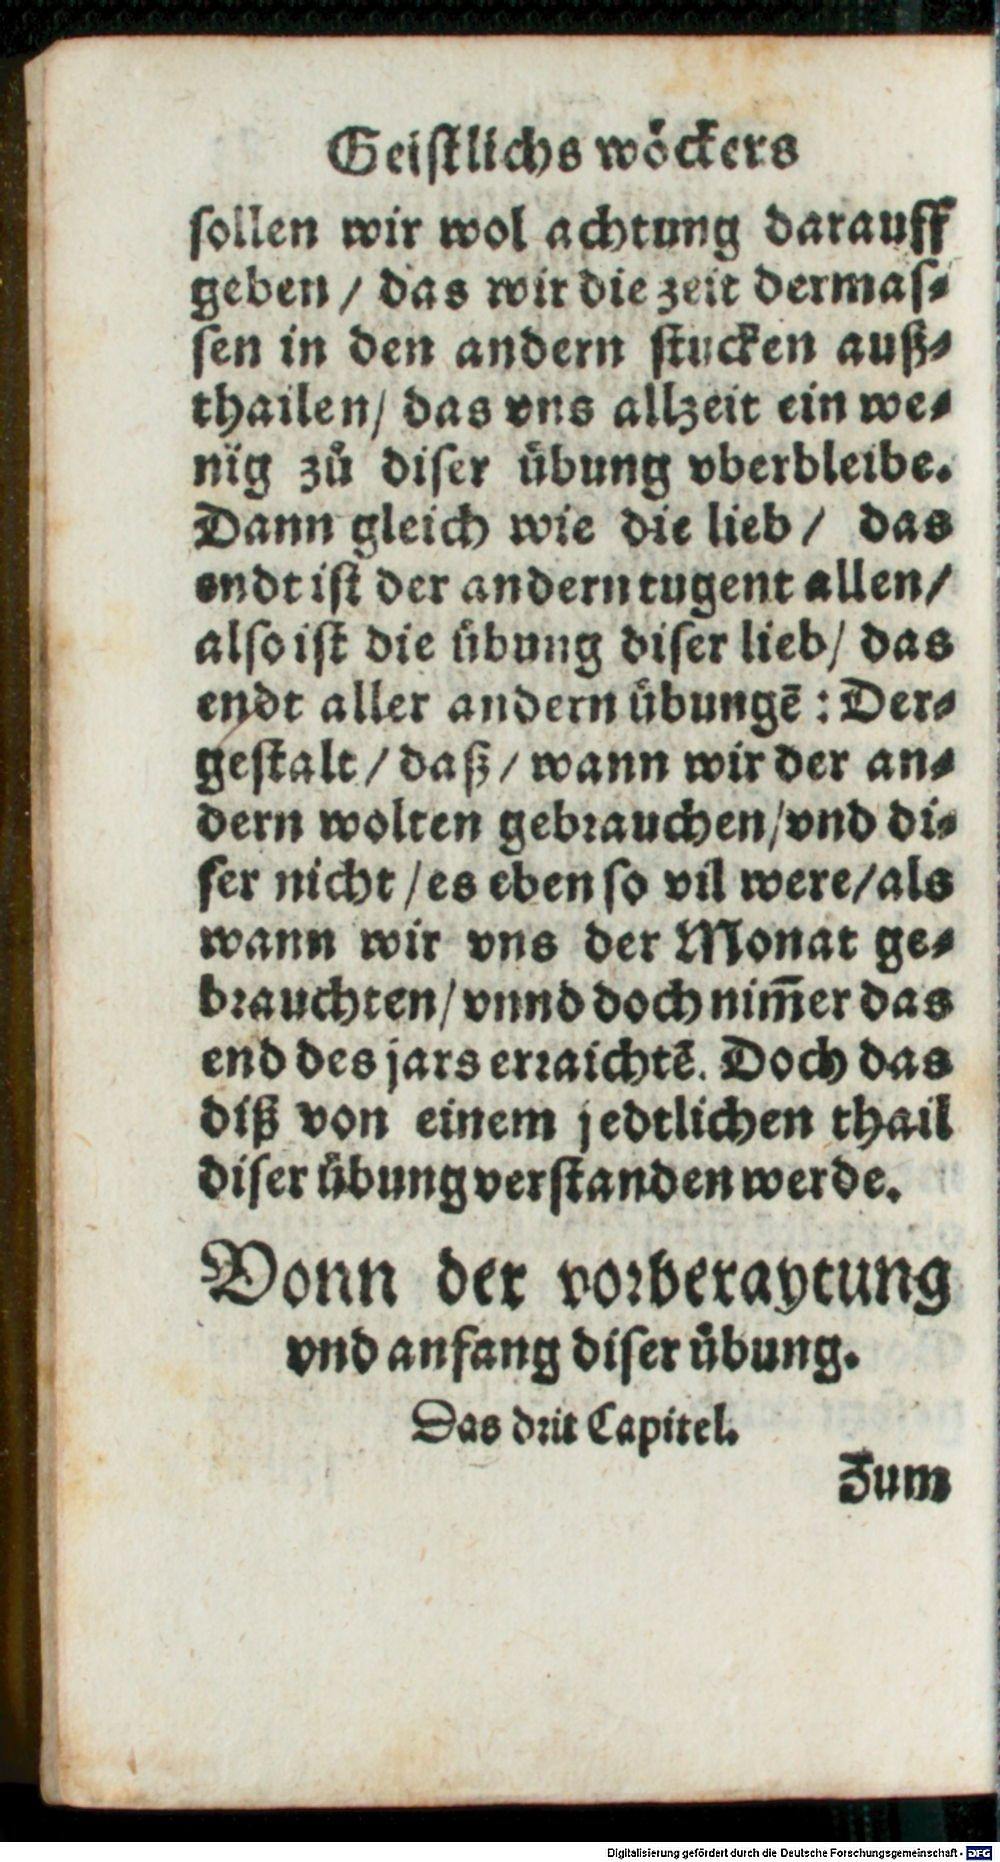 Geistlichs wöckers
sollen wir wol achtung darauff
geben / das wir die zeit dermas⸗
sen in den andern stucken auß⸗
thailen / das vns allzeit ein we⸗
nig zů diser übung vberbleibe.
Dann gleich wie die lieb / das
endt ist der andern tugent allen /
also ist die übung diser lieb / das
endt aller andern übungē : Der⸗
gestalt / daß / wann wir der an⸗
dern wolten gebrauchen / vnd di⸗
ser nicht / es eben so vil were / als
wann wir vns der Monat ge⸗
brauchten / vnnd doch nim̄er das
end des jars erraichtē. Doch das
diß von einem jedtlichen thail
diser übung verstanden werde.
Vonn der vorberaytung
vnd anfang diser übung.
Das drit Capitel.
Zum
Digitalisierung gefördert durch die Deutsche Forschungsgemeinschaft - DFG